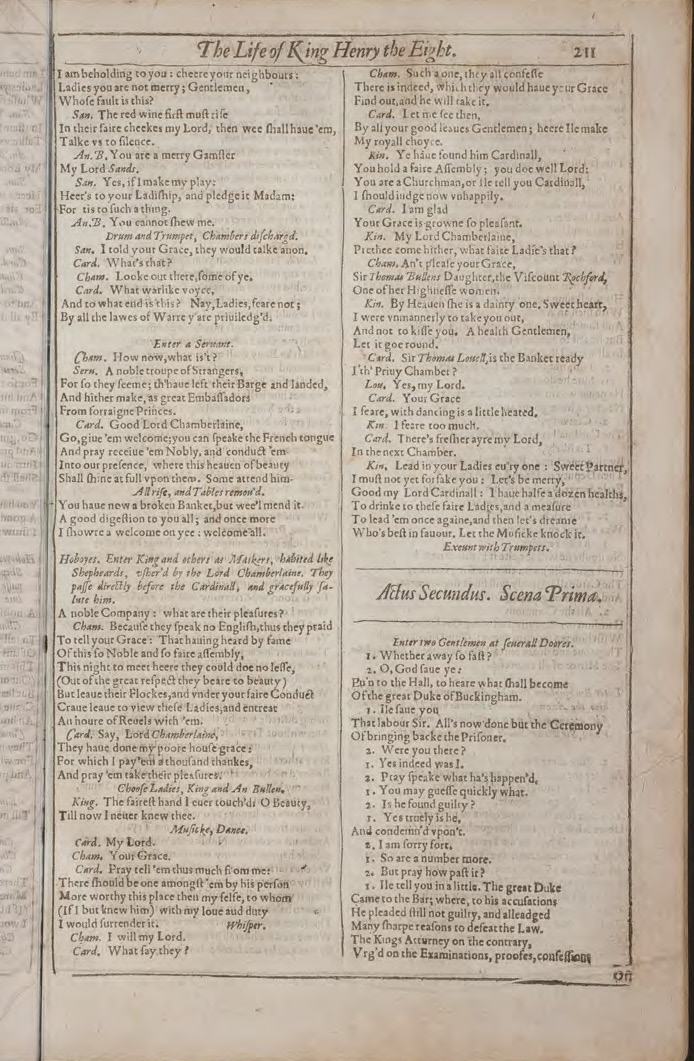 The Life of King Henry the Eight. 211
I am beholding to you : cheere your neighbours :
Ladies you are not merry ; Gentlemen ,
Whoſe fault is this?
San. The red wine firſt muſt riſe
In their faire cheekes my Lord, then wee ſhall haue 'em,
Talke vs to ſilence.
An.B. You are a merry Gamſter
My Lord Sands.
San. Yes, if I make my play:
Heer's to your Ladiſhip, and pledge it Madam:
For tis to ſuch a thing.
An.B. You cannot ſhew me.
Drum and Trumpet, Chambers diſchargd.
San. I told your Grace, they would talke anon.
Card. What's that?
Cham. Looke out there, ſome of ye.
Card. What warlike voyce,
And to what end is this? Nay, Ladies, feare not ;
By all the lawes of Warre y'are priuiledg'd.
Enter a Seruant.
Cham. How now, what is't?
Seru. A noble troupe of Strangers,
For ſo they ſeeme; th'haue left their Barge and landed,
And hither make, as great Embaſſadors
From forraigne Princes.
Card. Good Lord Chamberlaine,
Go, giue 'em welcome; you can ſpeake the French tongue
And pray receiue 'em Nobly, and conduct 'em
Into our preſence, where this heauen of beauty
Shall ſhine at full vpon them. Some attend him.
All riſe, and Tables remou'd.
You haue now a broken Banket, but wee'l mend it.
A good digeſtion to you all; and once more
I ſhowre a welcome on yee : welcome all.
Hoboyes. Enter King and others as Maskers, habited like
Shepheards, vſher'd by the Lord Chamberlaine. They
paſſe directly before the Cardinall, and gracefully ſa-
lute him.
A noble Company : what are their pleaſures?
Cham. Becauſe they ſpeak no Engliſh, thus they praid
To tell your Grace : That hauing heard by fame
Of this ſo Noble and ſo faire aſſembly,
This night to meet heere they could doe no leſſe,
(Out of the great reſpect they beare to beauty)
But leaue their Flockes, and vnder your faire Conduct
Craue leaue to view theſe Ladies, and entreat
An houre of Reuels with 'em.
Card. Say, Lord Chamberlaine,
They haue done my poore houſe grace:
For which I pay 'em a thouſand thankes,
And pray 'em take their pleaſures.
Chooſe Ladies, King and An Bullen.
King. The faireſt hand I euer touch'd: O Beauty,
Till now I neuer knew thee.
Muſicke, Dance.
Card. My Lord.
Cham. Your Grace.
Card. Pray tell 'em thus much from me:
There ſhould be one amongſt 'em by his perſon
More worthy this place then my ſelfe, to whom
(If I but knew him) with my loue and duty
I would ſurrender it. Whiſper.
Cham. I will my Lord.
Card. What ſay they?
Cham. Such a one, they all confeſſe
There is indeed, which they would haue your Grace
Find out, and he will take it.
Card. Let me ſee then,
By all your good leaues Gentlemen; heere Ile make
My royall choyce.
Kin. Ye haue found him Cardinall,
You hold a faire Aſſembly; you doe well Lord:
You are a Churchman, or Ile tell you Cardinall,
I ſhould iudge now vnhappily.
Card. I am glad
Your Grace is growne ſo pleaſant.
Kin. My Lord Chamberlaine,
Prethee come hither, what faire Ladie's that?
Cham. An't pleaſe your Grace,
Sir Thomas Bullens Daughter, the Viſcount Rochford,
One of her Highneſſe women.
Kin. By Heauen ſhe is a dainty one. Sweet heart,
I were vnmannerly to take you out,
And not to kiſſe you. A health Gentlemen,
Let it goe round.
Card. Sir Thomas Louell, is the Banket ready
I'th' Priuy Chamber?
Lou. Yes, my Lord.
Card. Your Grace
I feare, with dancing is a little heated.
Kin. I feare too much.
Card. There's freſher ayre my Lord,
In the next Chamber.
Kin. Lead in your Ladies eu'ry one : Sweet Partner,
I muſt not yet forſake you : Let's be merry,
Good my Lord Cardinall: I haue halfe a dozen healths,
To drinke to theſe faire Ladies, and a meaſure
To lead 'em once againe, and then let's dreame
Who's beſt in fauour. Let the Muſicke knock it.
Exeunt with Trumpets.
Actus Secundus. Scena Prima.
Enter two Gentlemen at ſeuerall Doores.
1. Whether away ſo faſt?
2. O, God ſaue ye:
Eu'n to the Hall, to heare what ſhall become
Of the great Duke of Buckingham.
1. Ile ſaue you
That labour Sir. All's now done but the Ceremony
Of bringing backe the Priſoner.
2. Were you there?
1. Yes indeed was I.
2. Pray ſpeake what ha's happen'd.
1. You may gueſſe quickly what.
2. Is he found guilty?
1. Yes truely is he,
And condemn'd vpon't.
2. I am ſorry fort.
1. So are a number more.
2. But pray how paſt it?
1. Ile tell you in a little. The great Duke
Came to the Bar; where, to his accuſations
He pleaded ſtill not guilty, and alleadged
Many ſharpe reaſons to defeat the Law.
The Kings Atturney on the contrary,
Vrg'd on the Examinations, proofes, confeſſions
Of